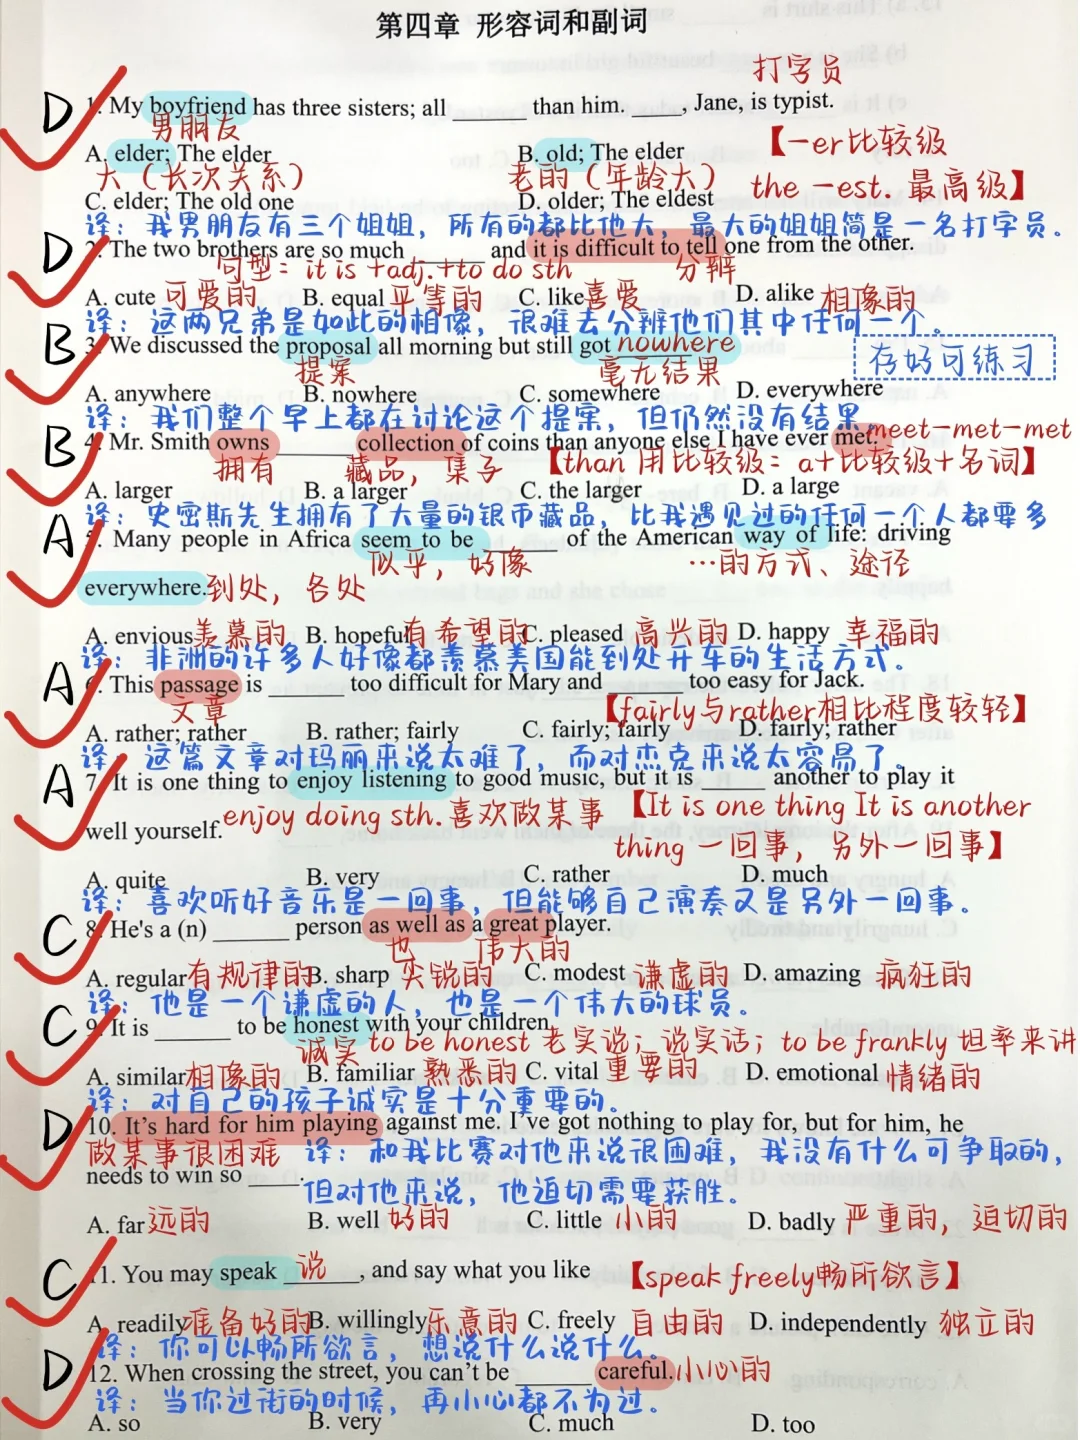 第四章 形容词和副词
打字员
D 1. My boyfriend has three sisters; all ______ than him. ______, Jane, is typist.
男朋友
A. elder; The elder B. old; The elder 【-er比较级
大（长次关系） 老的（年龄大） the -est. 最高级】
C. elder; The old one D. older; The eldest
译：我男朋友有三个姐姐，所有的都比他大，最大的姐姐简是一名打字员。
D 2. The two brothers are so much ______ and it is difficult to tell one from the other.
句型：it is +adj.+to do sth 分辨
A. cute 可爱的 B. equal 平等的 C. like 喜爱 D. alike 相像的
译：这两兄弟是如此的相像，很难去分辨他们其中任何一个。
B 3. We discussed the proposal all morning but still got nowhere
提案 毫无结果 存好可练习
A. anywhere B. nowhere C. somewhere D. everywhere
译：我们整个早上都在讨论这个提案，但仍然没有结果。
B 4. Mr. Smith owns ______ collection of coins than anyone else I have ever met. meet-met-met
拥有 藏品，集子 【than 用比较级：a+比较级+名词】
A. larger B. a larger C. the larger D. a large
译：史密斯先生拥有了大量的银币藏品，比我遇见过的任何一个人都要多
A 5. Many people in Africa seem to be ______ of the American way of life: driving
似乎，好像 …的方式、途径
everywhere. 到处，各处
A. envious 羡慕的 B. hopeful 有希望的 C. pleased 高兴的 D. happy 幸福的
译：非洲的许多人好像都羡慕美国能到处开车的生活方式。
A 6. This passage is ______ too difficult for Mary and ______ too easy for Jack.
文章 【fairly与rather相比程度较轻】
A. rather; rather B. rather; fairly C. fairly; fairly D. fairly; rather
译：这篇文章对玛丽来说太难了，而对杰克来说太容易了。
A 7. It is one thing to enjoy listening to good music, but it is ______ another to play it
enjoy doing sth. 喜欢做某事 【It is one thing It is another
well yourself.
thing 一回事，另外一回事】
A. quite B. very C. rather D. much
译：喜欢听好音乐是一回事，但能够自己演奏又是另外一回事。
C 8. He's a (n) ______ person as well as a great player.
也 伟大的
A. regular 有规律的 B. sharp 尖锐的 C. modest 谦虚的 D. amazing 疯狂的
译：他是一个谦虚的人，也是一个伟大的球员。
C 9. It is ______ to be honest with your children.
诚实 to be honest 老实说；说实话；to be frankly 坦率来讲
A. similar 相像的 B. familiar 熟悉的 C. vital 重要的 D. emotional 情绪的
译：对自己的孩子诚实是十分重要的。
D 10. It's hard for him playing against me. I've got nothing to play for, but for him, he
做某事很困难 译：和我比赛对他来说很困难，我没有什么可争取的，
needs to win so ____.
但对他来说，他迫切需要获胜。
A. far 远的 B. well 好的 C. little 小的 D. badly 严重的，迫切的
C 11. You may speak 说______, and say what you like 【speak freely畅所欲言】
A. readily 准备好的 B. willingly 乐意的 C. freely 自由的 D. independently 独立的
译：你可以畅所欲言，想说什么说什么。
D 12. When crossing the street, you can't be ______ careful. 小心的
译：当你过街的时候，再小心都不为过。
A. so B. very C. much D. too